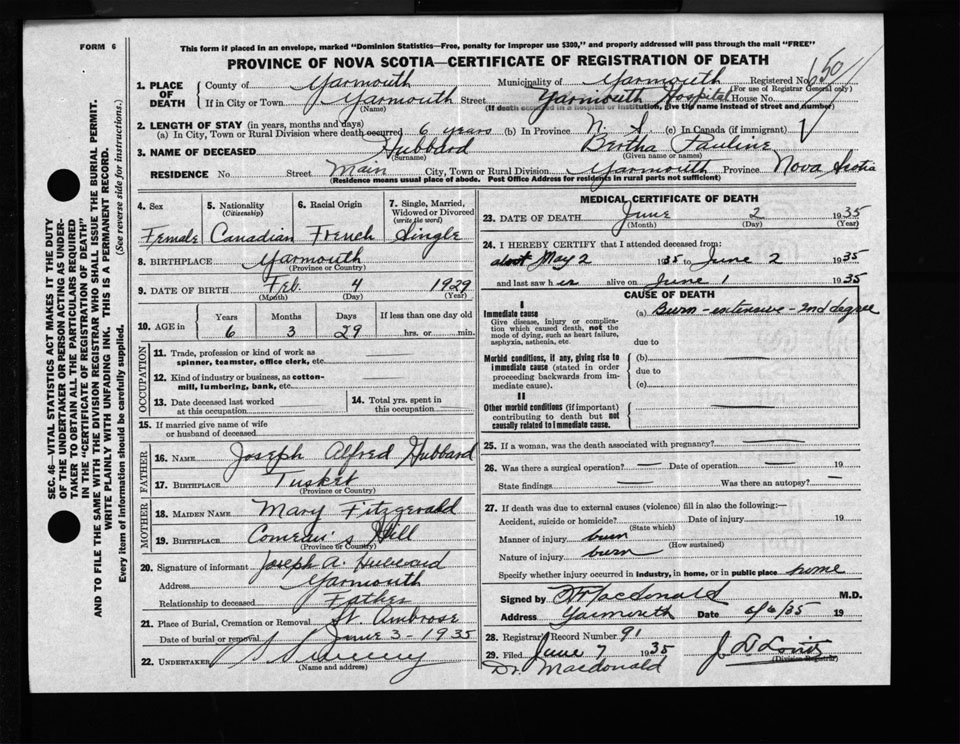 FORM 6
This form if placed in an envelope, marked "Dominion Statistics—Free, penalty for improper use $300," and properly addressed will pass through the mail "FREE"
PROVINCE OF NOVA SCOTIA—CERTIFICATE OF REGISTRATION OF DEATH
1501
SEC. 46—VITAL STATISTICS ACT MAKES IT THE DUTY
OF THE UNDERTAKER OR PERSON ACTING AS UNDER-
TAKER TO OBTAIN ALL THE PARTICULARS REQUIRED
IN THE "CERTIFICATE OF REGISTRATION OF DEATH"
AND TO FILE THE SAME WITH THE DIVISION REGISTRAR WHO SHALL ISSUE THE BURIAL PERMIT.
WRITE PLAINLY WITH UNFADING INK. THIS IS A PERMANENT RECORD.
Every item of information should be carefully supplied. (See reverse side for instructions.)
1. PLACE OF DEATH County of Yarmouth Municipality of Yarmouth Registered No.
(For use of Registrar General only)
If in City or Town Yarmouth Street Yarmouth Hospital House No.
(Name) (If death occurred in a hospital or institution, give the name instead of street and number)
2. LENGTH OF STAY (in years, months and days)
(a) In City, Town or Rural Division where death occurred 6 years (b) In Province N. S. (c) In Canada (if immigrant)
3. NAME OF DECEASED Hubbard Bertha Pauline
(Surname) (Given name or names)
RESIDENCE No. Street Main City, Town or Rural Division Yarmouth Province Nova Scotia
(Residence means usual place of abode. Post Office Address for residents in rural parts not sufficient)
4. Sex Female
5. Nationality (Citizenship) Canadian
6. Racial Origin French
7. Single, Married, Widowed or Divorced (write the word) Single
8. BIRTHPLACE Yarmouth
(Province or Country)
9. DATE OF BIRTH Feb. 4 1929
(Month) (Day) (Year)
10. AGE in Years Months Days If less than one day old
6 3 29 hrs. or min.
OCCUPATION
11. Trade, profession or kind of work as
spinner, teamster, office clerk, etc.
12. Kind of industry or business, as cotton-
mill, lumbering, bank, etc.
13. Date deceased last worked
at this occupation
14. Total yrs. spent in
this occupation
15. If married give name of wife
or husband of deceased
FATHER
16. NAME Joseph Alfred Hubbard
17. BIRTHPLACE Tusket
(Province or Country)
MOTHER
18. MAIDEN NAME Mary Fitzgerald
19. BIRTHPLACE Comeau's Hill
(Province or Country)
20. Signature of informant Joseph A. Hubbard
Address Yarmouth
Relationship to deceased Father
21. Place of Burial, Cremation or Removal St. Ambrose
Date of burial or removal June 3 - 1935
22. UNDERTAKER
(Name and address)
MEDICAL CERTIFICATE OF DEATH
23. DATE OF DEATH June 2 1935
(Month) (Day) (Year)
24. I HEREBY CERTIFY that I attended deceased from:
about May 2 1935 to June 2 1935
and last saw her alive on June 1 1935
CAUSE OF DEATH
I
Immediate cause
Give disease, injury or complica-
tion which caused death, not the
mode of dying, such as heart failure,
asphyxia, asthenia, etc.
(a) Burn - extensive - 2nd degree
due to
Morbid conditions, if any, giving rise to
immediate cause (stated in order
proceeding backwards from im-
mediate cause).
(b)
due to
(c)
II
Other morbid conditions (if important)
contributing to death but not
causally related to immediate cause.
25. If a woman, was the death associated with pregnancy?
26. Was there a surgical operation? Date of operation 19
State findings Was there an autopsy?
27. If death was due to external causes (violence) fill in also the following:—
Accident, suicide or homicide? Date of injury 19
(State which)
Manner of injury burn
(How sustained)
Nature of injury burn
Specify whether injury occurred in industry, in home, or in public place home
Signed by Macdonald M.D.
Address Yarmouth Date 6/6/35 19
28. Registrar Record Number 91
29. Filed June 7 1935
(Division Registrar)
Dr. Macdonald